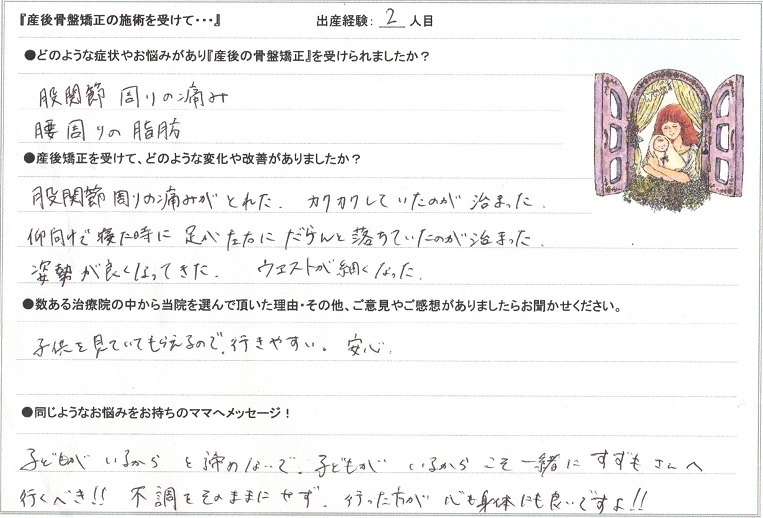 『産後骨盤矯正の施術を受けて・・・』 出産経験: 2 人目
●どのような症状やお悩みがあり『産後の骨盤矯正』を受けられましたか？
股関節 周りの痛み
腰周りの脂肪
●産後矯正を受けて、どのような変化や改善がありましたか？
股関節周りの痛みがとれた. カクカクしていたのが 治まった.
仰向けで寝た時に 足が左右に だらんと落ちていたのが治まった.
姿勢が良くなってきた. ウエストが細くなった.
●数ある治療院の中から当院を選んで頂いた理由・その他、ご意見やご感想がありましたらお聞かせください。
子供を見ていてもらえるので、行きやすい。 安心.
●同じようなお悩みをお持ちのママへメッセージ！
子どもが いるから と諦めないで、子どもが いるから こそ 一緒に すずも さんへ
行くべき!! 不調をそのままにせず. 行った方が 心も身体にも良いですよ!!